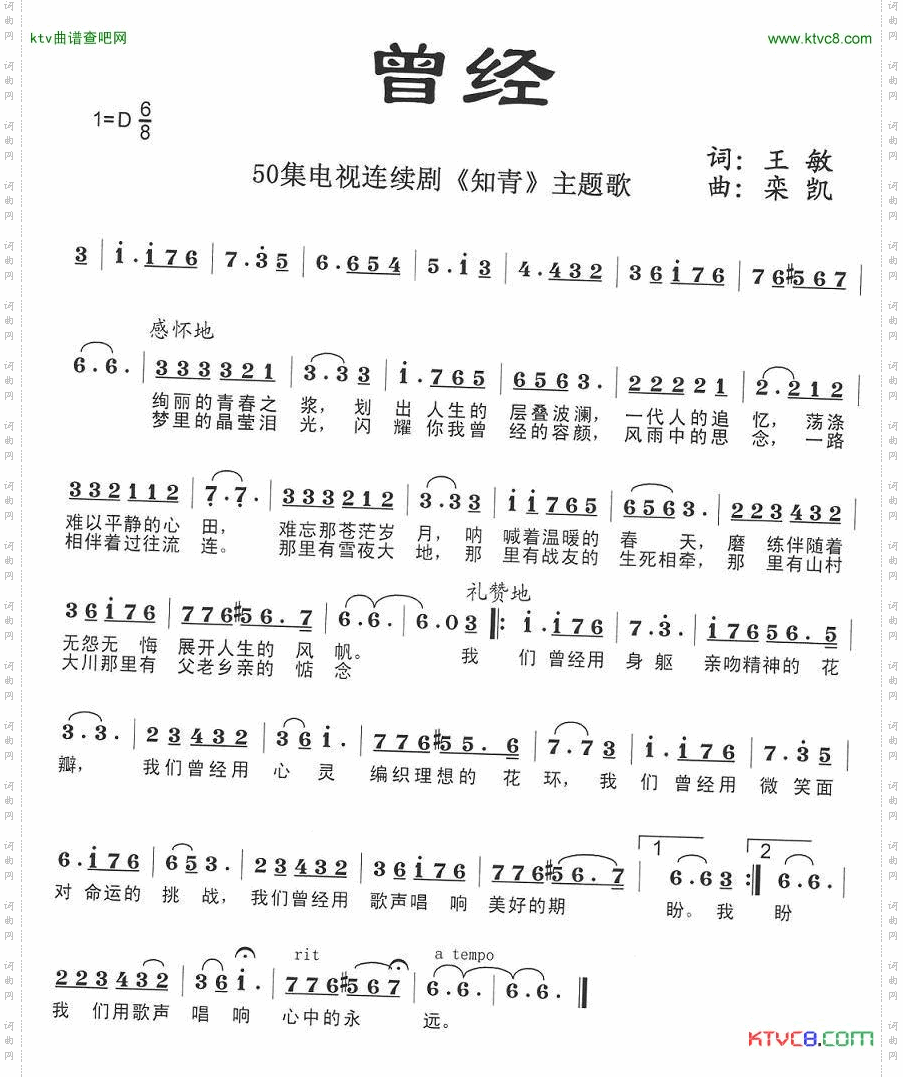 ktv曲谱查吧网
www.ktvc8.com
曾经
1=D 6/8
词：王 敏
50集电视连续剧《知青》主题歌
曲：栾 凯
3 | i . i 7 6 | 7 . 3 5 | 6 . 6 5 4 | 5 . i 3 | 4 . 4 3 2 | 3 6 i 7 6 | 7 6 #5 6 7 |
感怀地
6 . 6 . | 3 3 3 3 2 1 | 3 . 3 3 | i . 7 6 5 | 6 5 6 3 . | 2 2 2 2 2 1 | 2 . 2 1 2 |
绚丽的青春之 浆，划 出 人生的 层叠波澜，一代人的追 忆，荡涤
梦里的晶莹泪 光，闪 耀 你我曾 经的容颜，风雨中的思 念，一路
3 3 2 1 1 2 | 7 . 7 . | 3 3 3 2 1 2 | 3 . 3 3 | i i 7 6 5 | 6 5 6 3 . | 2 2 3 4 3 2 |
难以平静的心 田， 难忘那苍茫岁 月，呐 喊着温暖的 春 天，磨 练伴随着
相伴着过往流 连。 那里有雪夜大 地，那 里有战友的 生死相牵，那 里有山村
礼赞地
3 6 i 7 6 | 7 7 6 #5 6 . 7 | 6 . 6 . | 6 . 0 3 ‖: i . i 7 6 | 7 . 3 . | i 7 6 5 6 . 5 |
无怨无 悔 展开人生的 风 帆。 我 们 曾经用 身 躯 亲吻精神的 花
大川那里有 父老乡亲的 惦 念
3 . 3 . | 2 3 4 3 2 | 3 6 i . | 7 7 6 #5 5 . 6 | 7 . 7 3 | i . i 7 6 | 7 . 3 5 |
瓣， 我们曾经用 心 灵 编织理想的 花 环，我 们 曾经用 微 笑面
1 2
6 . i 7 6 | 6 5 3 . | 2 3 4 3 2 | 3 6 i 7 6 | 7 7 6 #5 6 . 7 | 6 . 6 3 :‖ 6 . 6 . |
对 命运的 挑 战，我们曾经用 歌声唱 响 美好的期 盼。我 盼
rit a tempo
2 2 3 4 3 2 | 3 6 i . | 7 7 6 #5 6 7 | 6 . 6 . | 6 . 6 . ‖
我 们用歌声 唱 响 心中的永 远。
KTVC8.COM
词曲网